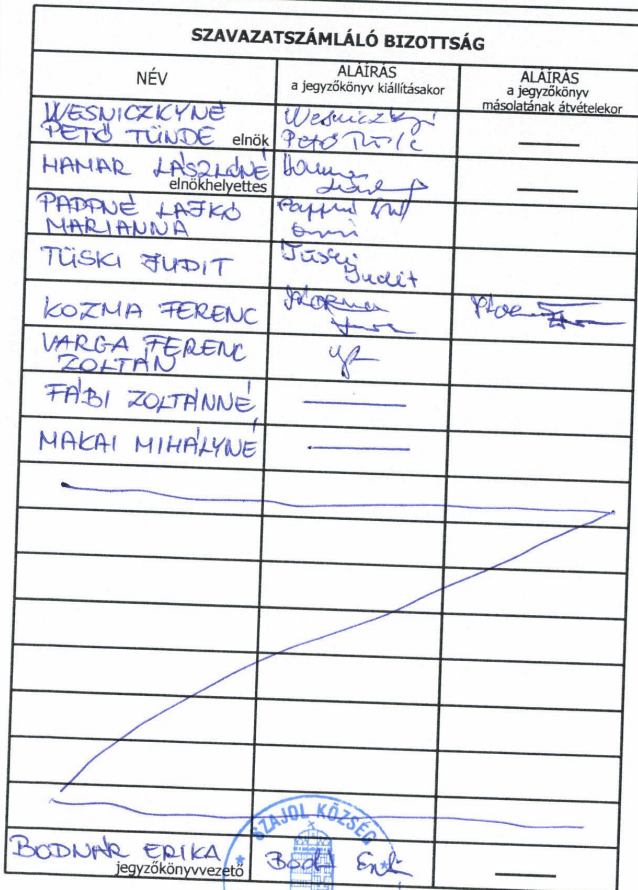 SZAVAZATSZÁMLÁLÓ BIZOTTSÁG
NÉV
ALÁÍRÁS
a jegyzőkönyv kiállításakor
ALÁÍRÁS
a jegyzőkönyv
másolatának átvételekor
WESNICZKYNÉ
PETŐ TÜNDE elnök
Wesniczkyné
Pető Tünde
HAMAR LÁSZLÓNÉ
elnökhelyettes
PAPPNÉ LAJKÓ
MARIANNA
TÜSKI JUDIT
Tüski
Judit
KOZMA FERENC
VARGA FERENC
ZOLTÁN
FÁBI ZOLTÁNNÉ
MAKAI MIHÁLYNÉ
SZAJOL KÖZSÉG
BODNÁR ERIKA
jegyzőkönyvvezető